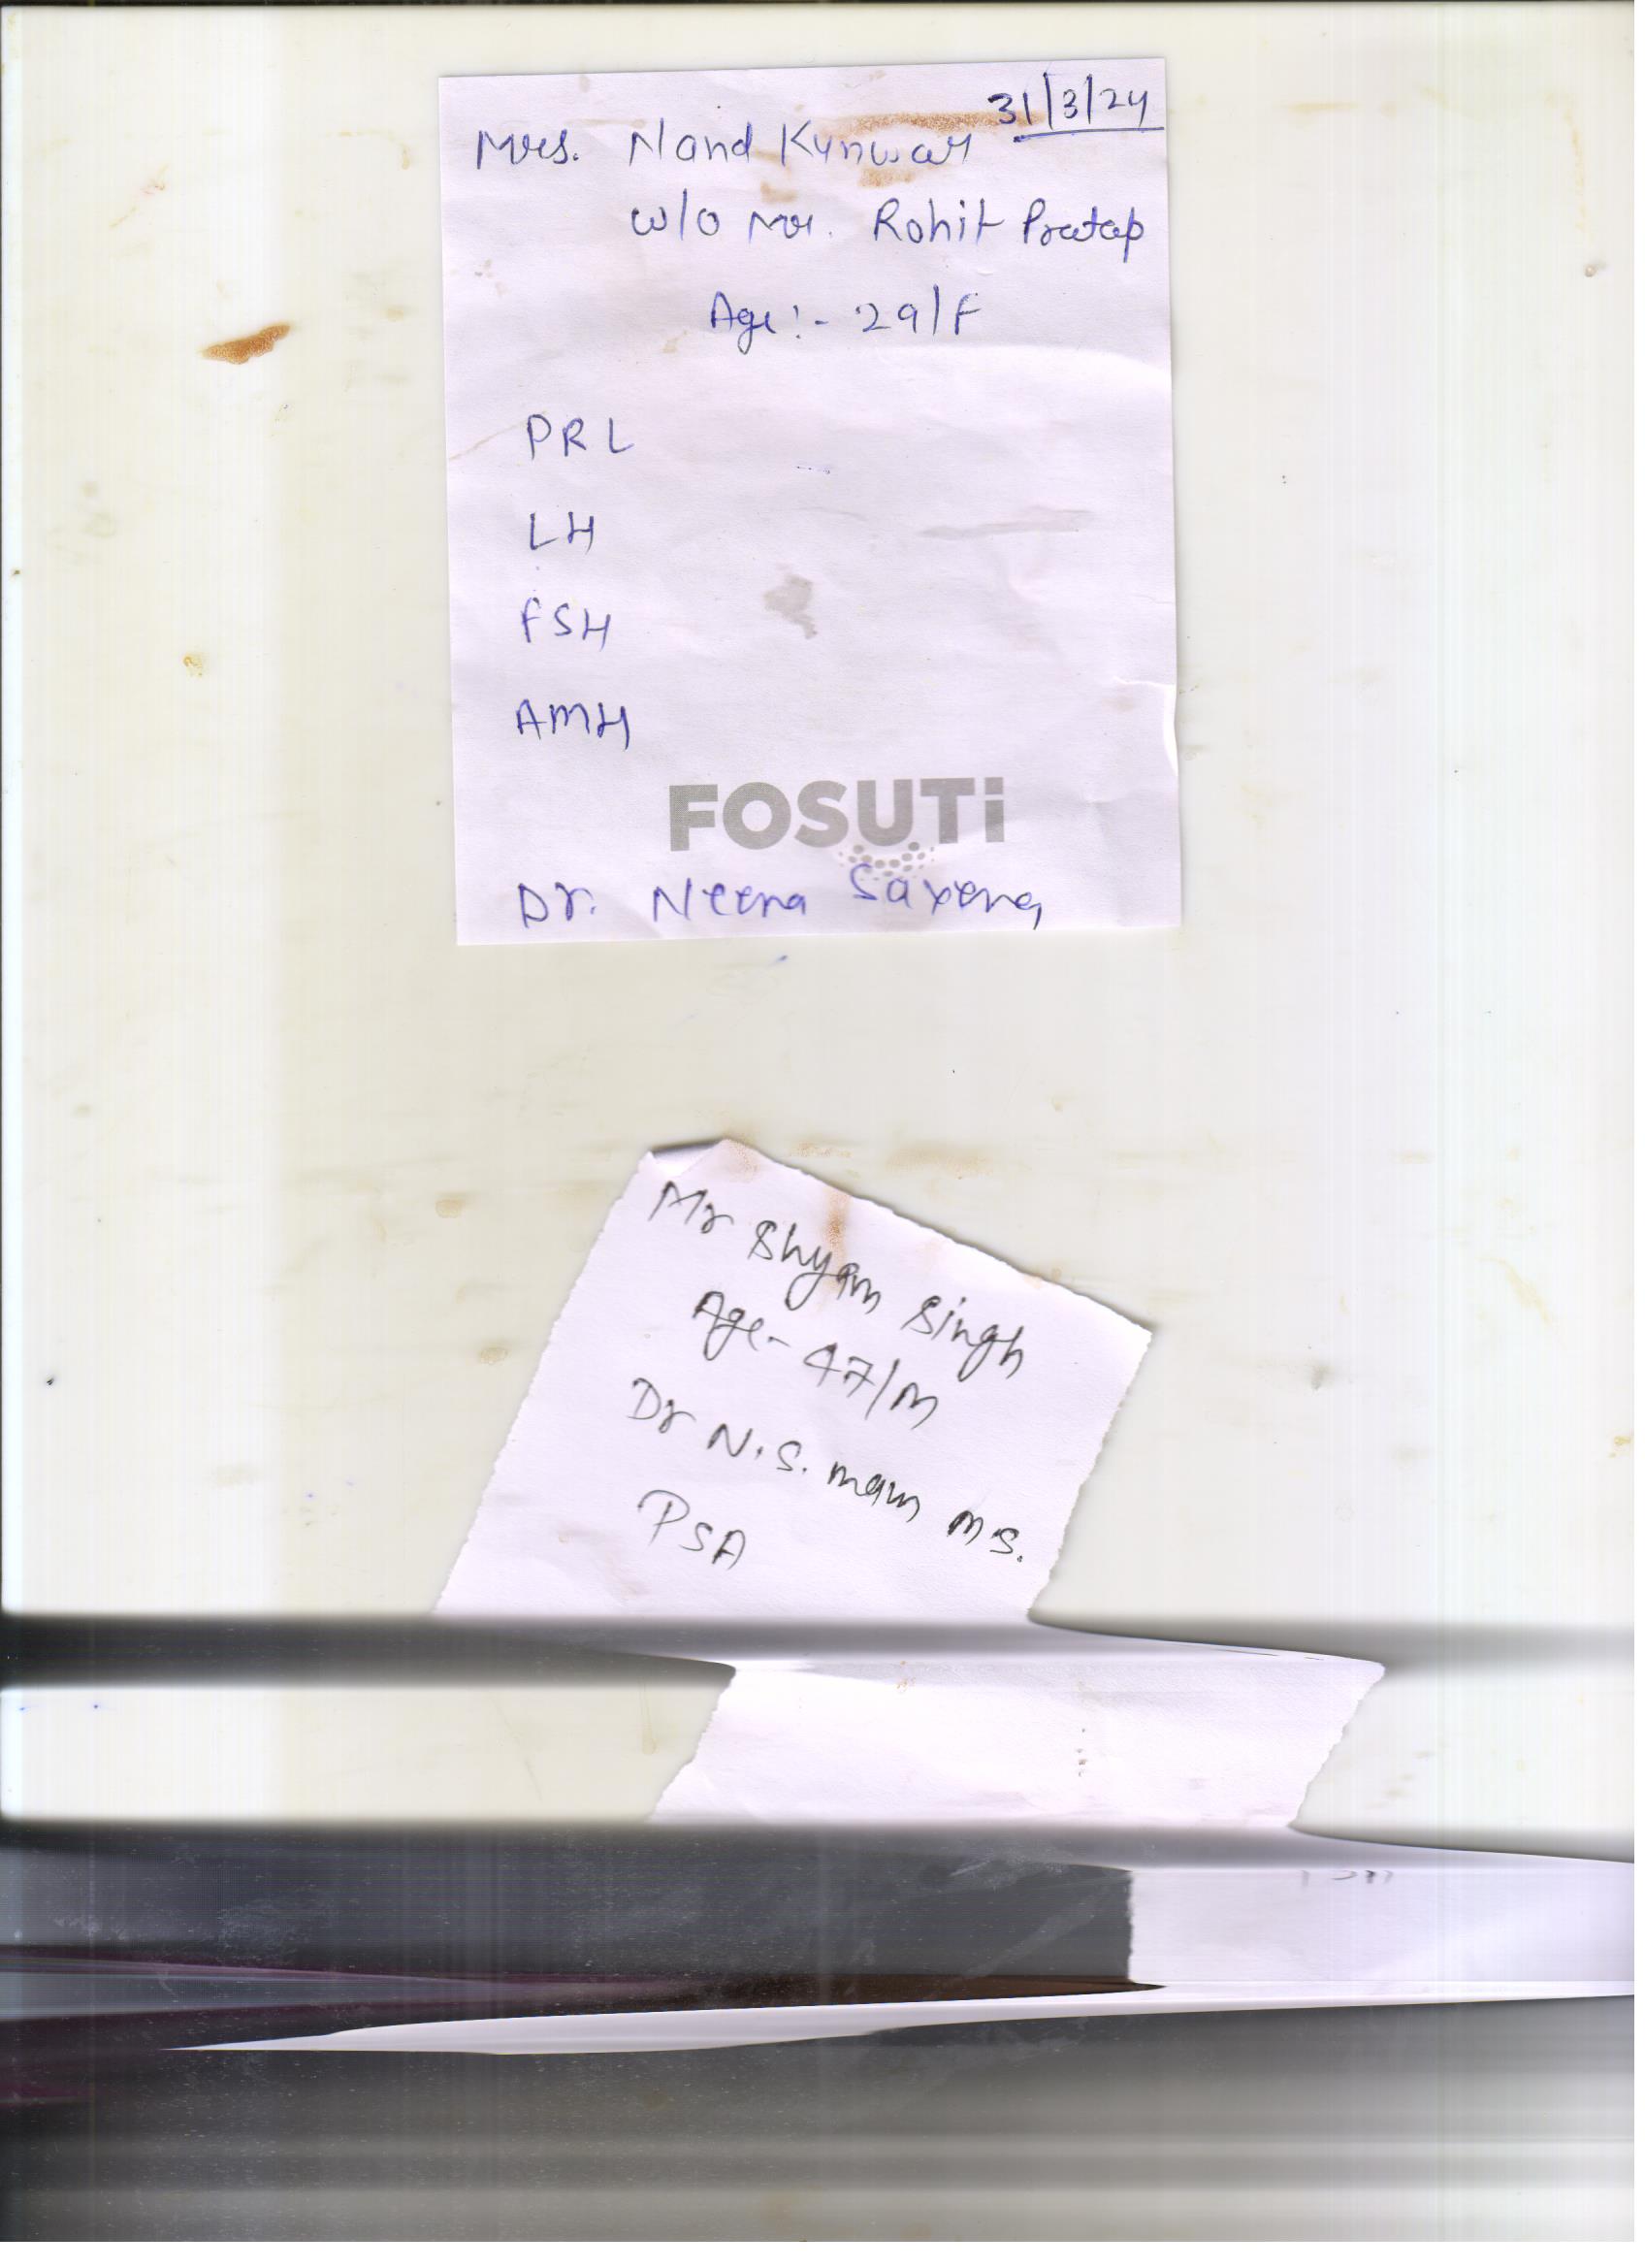 31/3/24
Mrs. Nand Kunwar
w/o Mr. Rohit Pratap
Age:- 29/F
PRL
LH
FSH
AMH
FOSUTi
Dr. Neena Saxena
Mr Shyam Singh
Age- 47/M
Dr N.S. mam MS.
PSA